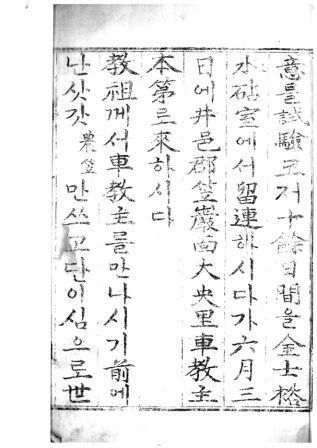 意를試驗코저十餘日間을金士裕
水砧室에서留連하시다가六月三
日에井邑郡笠巖面大央里車敎主
本第로來하시다
敎祖께서車敎主를만나시기前에
난삿갓農笠만쓰고단이심으로世